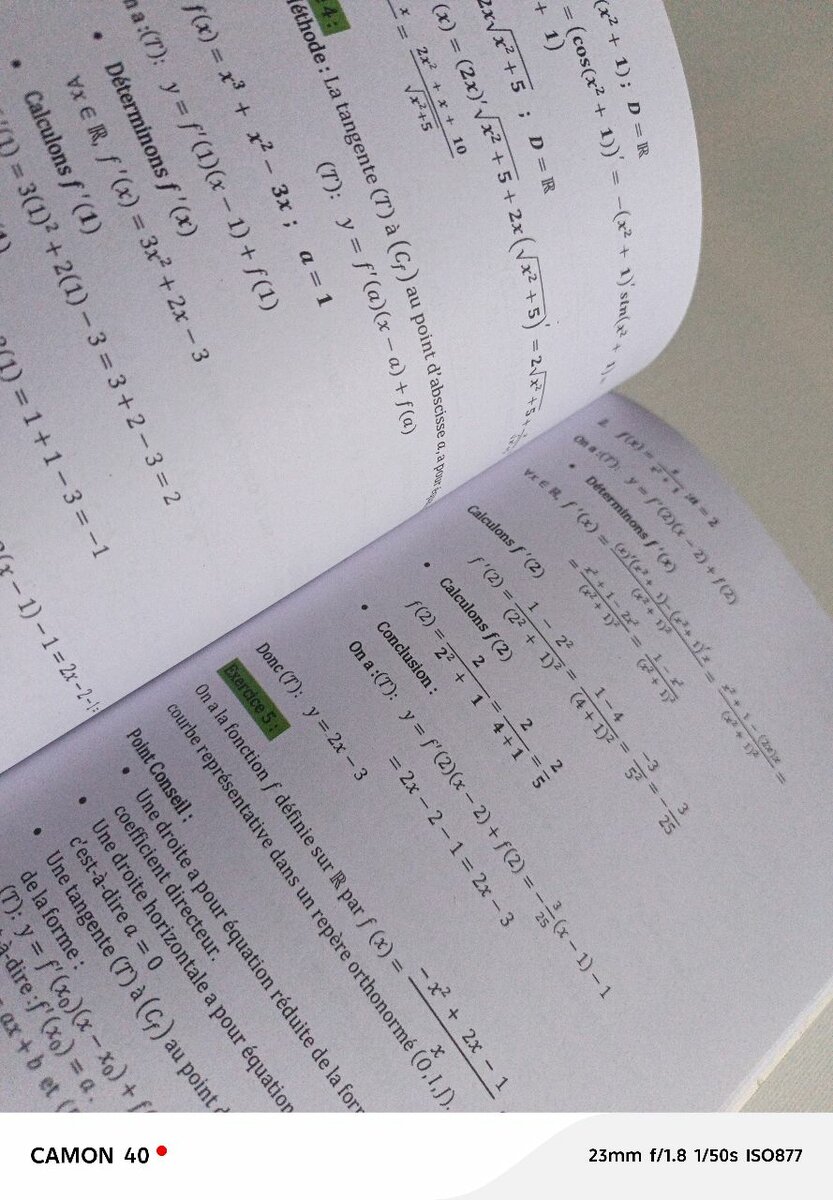 (x² + 1) ; D = ℝ
= (cos(x² + 1))′ = −(x² + 1)′ sin(x² +
+ 1)
2x√(x² + 5) ; D = ℝ
(x) = (2x)′√(x² + 5) + 2x(√(x² + 5))′ = 2√(x² + 5) +
x = (2x² + x + 10)/√(x²+5)
4 :
éthode : La tangente (T) à (Cf) au point d'abscisse a, a pour
(T): y = f′(a)(x − a) + f(a)
f(x) = x³ + x² − 3x ; a = 1
n a :(T): y = f′(1)(x − 1) + f(1)
• Déterminons f′(x)
∀x ∈ ℝ, f′(x) = 3x² + 2x − 3
• Calculons f′(1)
′(1) = 3(1)² + 2(1) − 3 = 3 + 2 − 3 = 2
(1) = 1 + 1 − 3 = −1
(x − 1) − 1 = 2x − 2 − 1
2. f(x) = x/(x² + 1) ; a = 2
On a :(T): y = f′(2)(x − 2) + f(2)
• Déterminons f′(x)
∀x ∈ ℝ, f′(x) = ((x)′(x² + 1) − (x² + 1)′x)/(x² + 1)² = (x² + 1 − (2x)x)/(x² + 1)² =
= (x² + 1 − 2x²)/(x² + 1)² = (1 − x²)/(x² + 1)²
Calculons f′(2)
f′(2) = (1 − 2²)/(2² + 1)² = (1 − 4)/(4 + 1)² = −3/5² = −3/25
• Calculons f(2)
f(2) = 2/(2² + 1) = 2/(4 + 1) = 2/5
• Conclusion :
On a :(T): y = f′(2)(x − 2) + f(2) = −3/25(x − 1) − 1
= 2x − 2 − 1 = 2x − 3
Donc (T): y = 2x − 3
Exercice 5 :
On a la fonction f définie sur ℝ par f(x) = (−x² + 2x − 1)/x
courbe représentative dans un repère orthonormé (O, I, J).
Point Conseil :
• Une droite a pour équation réduite de la
coefficient directeur.
• Une droite horizontale a pour équation
c'est-à-dire a = 0
• Une tangente (T) à (Cf) au point
de la forme :
(T): y = f′(x₀)(x − x₀) +
à-dire : f′(x₀) = a.
= ax + b et